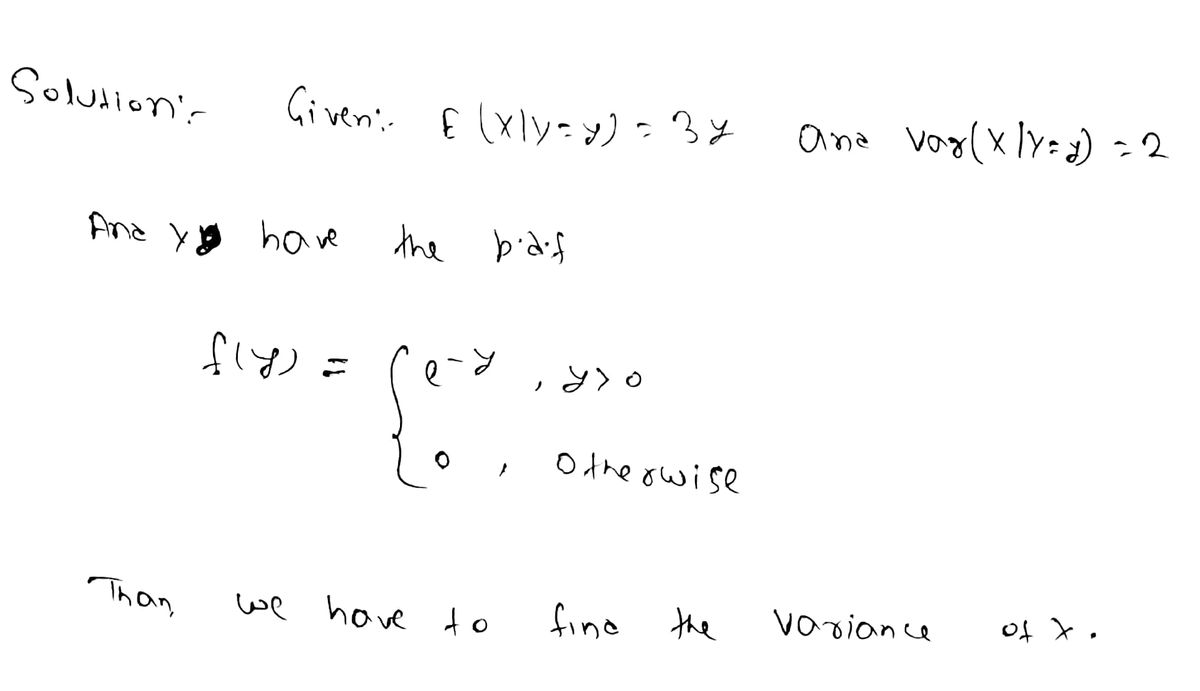 Solution:- Given:- E(X|Y=y) = 3y and Var(X|Y=y) = 2
And Y have the p.d.f
f(y) = { e^-y , y>0
0 , Otherwise
Than, we have to find the variance of X.